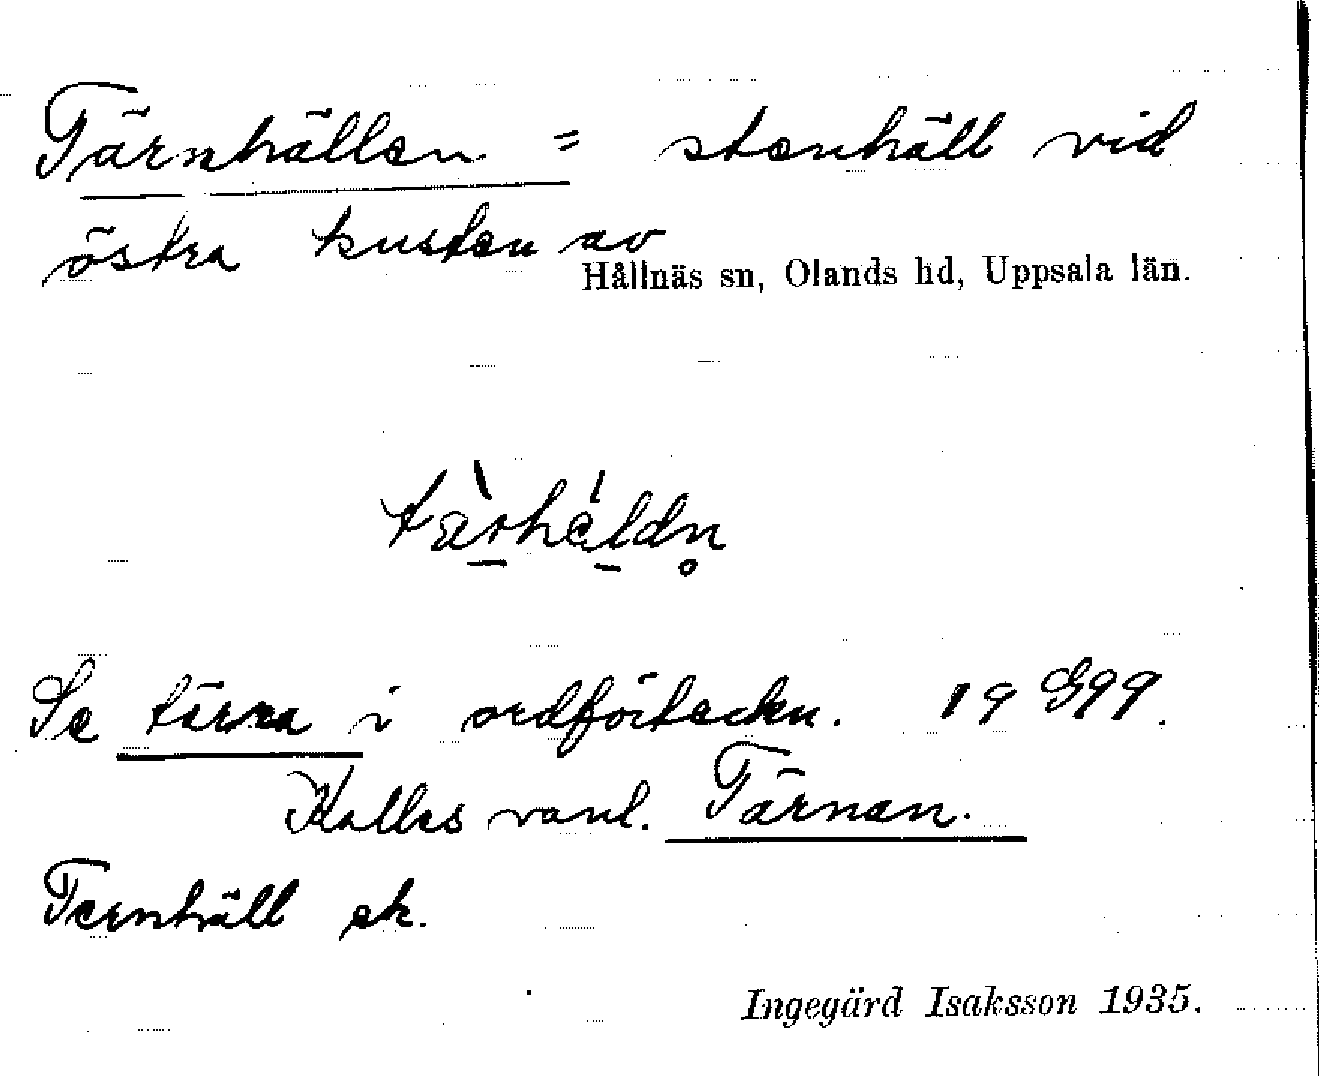 Tärnhällen = stenhäll vid
östra kusten av
Hållnäs sn, Olands hd, Uppsala län.
Se tärna i ordförteckn. 19 G99.
Kallas vanl. Tärnan.
Ternhäll ek.
Ingegärd Isaksson 1935.